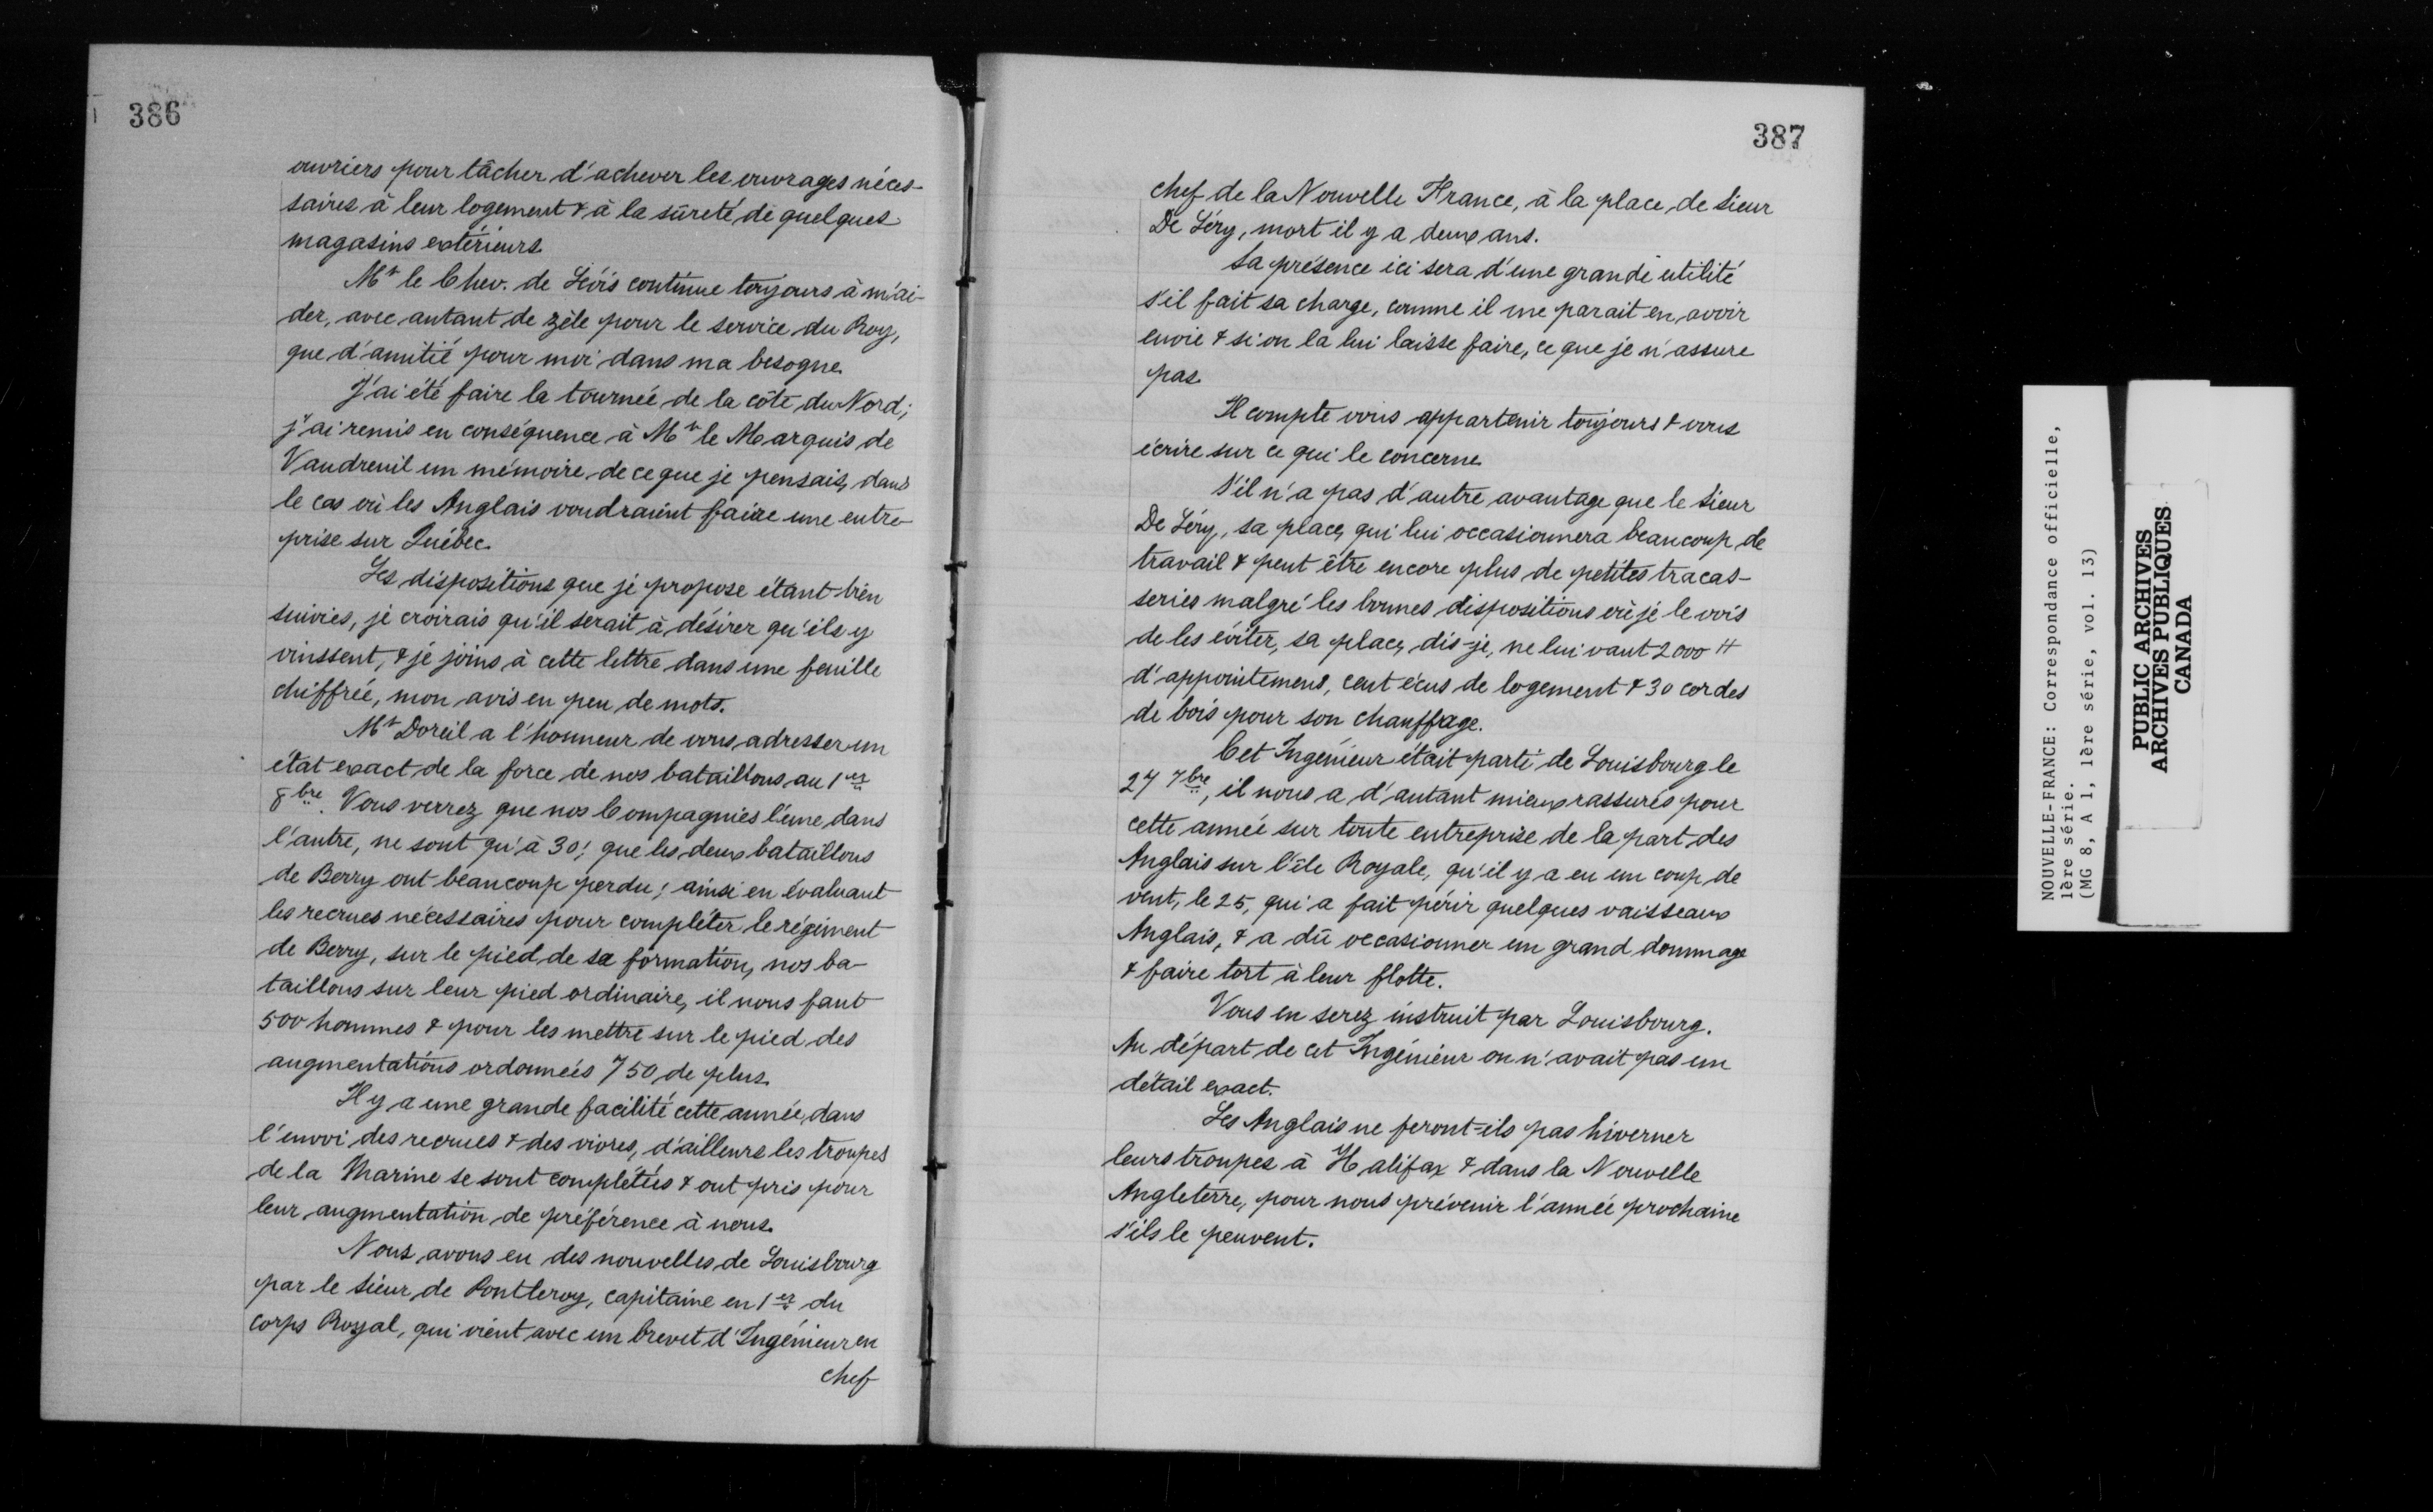 386
ouvriers pour tâcher d'achever les ouvrages néces-
saires à leur logement & à la sûreté de quelques
magasins extérieurs.
Mr le Chev. de Lévis continue toujours à m'ai-
der, avec autant de zèle pour le service du Roy,
que d'amitié pour moi dans ma besogne.
J'ai été faire la tournée de la côte du Nord;
j'ai remis en conséquence à Mr le Marquis de
Vaudreuil un mémoire de ce que je pensais, dans
le cas où les Anglais voudraient faire une entre-
prise sur Québec.
Les dispositions que je propose étant bien
suivies, je croirais qu'il serait à désirer qu'ils y
vinssent, & je joins à cette lettre dans une feuille
chiffrée, mon avis en peu de mots.
Mr Doreil a l'honneur de vous adresser un
état exact de la force de nos bataillons au 1er
8bre. Vous verrez que nos Compagnies l'une dans
l'autre, ne sont qu'à 30; que les deux bataillons
de Berry ont beaucoup perdu; ainsi en évaluant
les recrues nécessaires pour compléter le régiment
de Berry, sur le pied de sa formation, nos ba-
taillons sur leur pied ordinaire, il nous faut
500 hommes & pour les mettre sur le pied des
augmentations ordonnées 750 de plus.
Il y a une grande facilité cette année, dans
l'envoi des recrues & des vivres, d'ailleurs les troupes
de la Marine se sont complétées & ont pris pour
leur augmentation de préférence à nous.
Nous avons eu des nouvelles de Louisbourg
par le sieur de Pontleroy, capitaine en 1er du
corps Royal, qui vient avec un brevet d'Ingénieur en
chef
387
chef de la Nouvelle France, à la place de sieur
De Léry, mort il y a deux ans.
Sa présence ici sera d'une grande utilité
s'il fait sa charge, comme il me parait en avoir
envie & si on la lui laisse faire, ce que je n'assure
pas.
Il compte vous appartenir toujours & vous
écrire sur ce qui le concerne.
S'il n'a pas d'autre avantage que le sieur
De Léry, sa place, qui lui occasionnera beaucoup de
travail & peut être encore plus de petites tracas-
series malgré les bonnes dispositions où je le vois
de les éviter, sa place, dis-je, ne lui vaut 2000 tt
d'appointemens, cent écus de logement & 30 cordes
de bois pour son chauffage.
Cet Ingénieur était parti de Louisbourg le
27 7bre, il nous a d'autant mieux rassurés pour
cette année sur toute entreprise de la part des
Anglais sur l'île Royale, qu'il y a eu un coup de
vent, le 25, qui a fait périr quelques vaisseaux
Anglais, & a dû occasionner un grand dommage
& faire tort à leur flotte.
Vous en serez instruit par Louisbourg.
Au départ de cet Ingénieur on n'avait pas un
détail exact.
Les Anglais ne feront-ils pas hiverner
leurs troupes à Halifax & dans la Nouvelle
Angleterre, pour nous prévenir l'année prochaine
s'ils le peuvent.
NOUVELLE-FRANCE: Correspondance officielle,
1ère série.
(MG 8, A 1, 1ère série, vol. 13)
PUBLIC ARCHIVES
ARCHIVES PUBLIQUES
CANADA